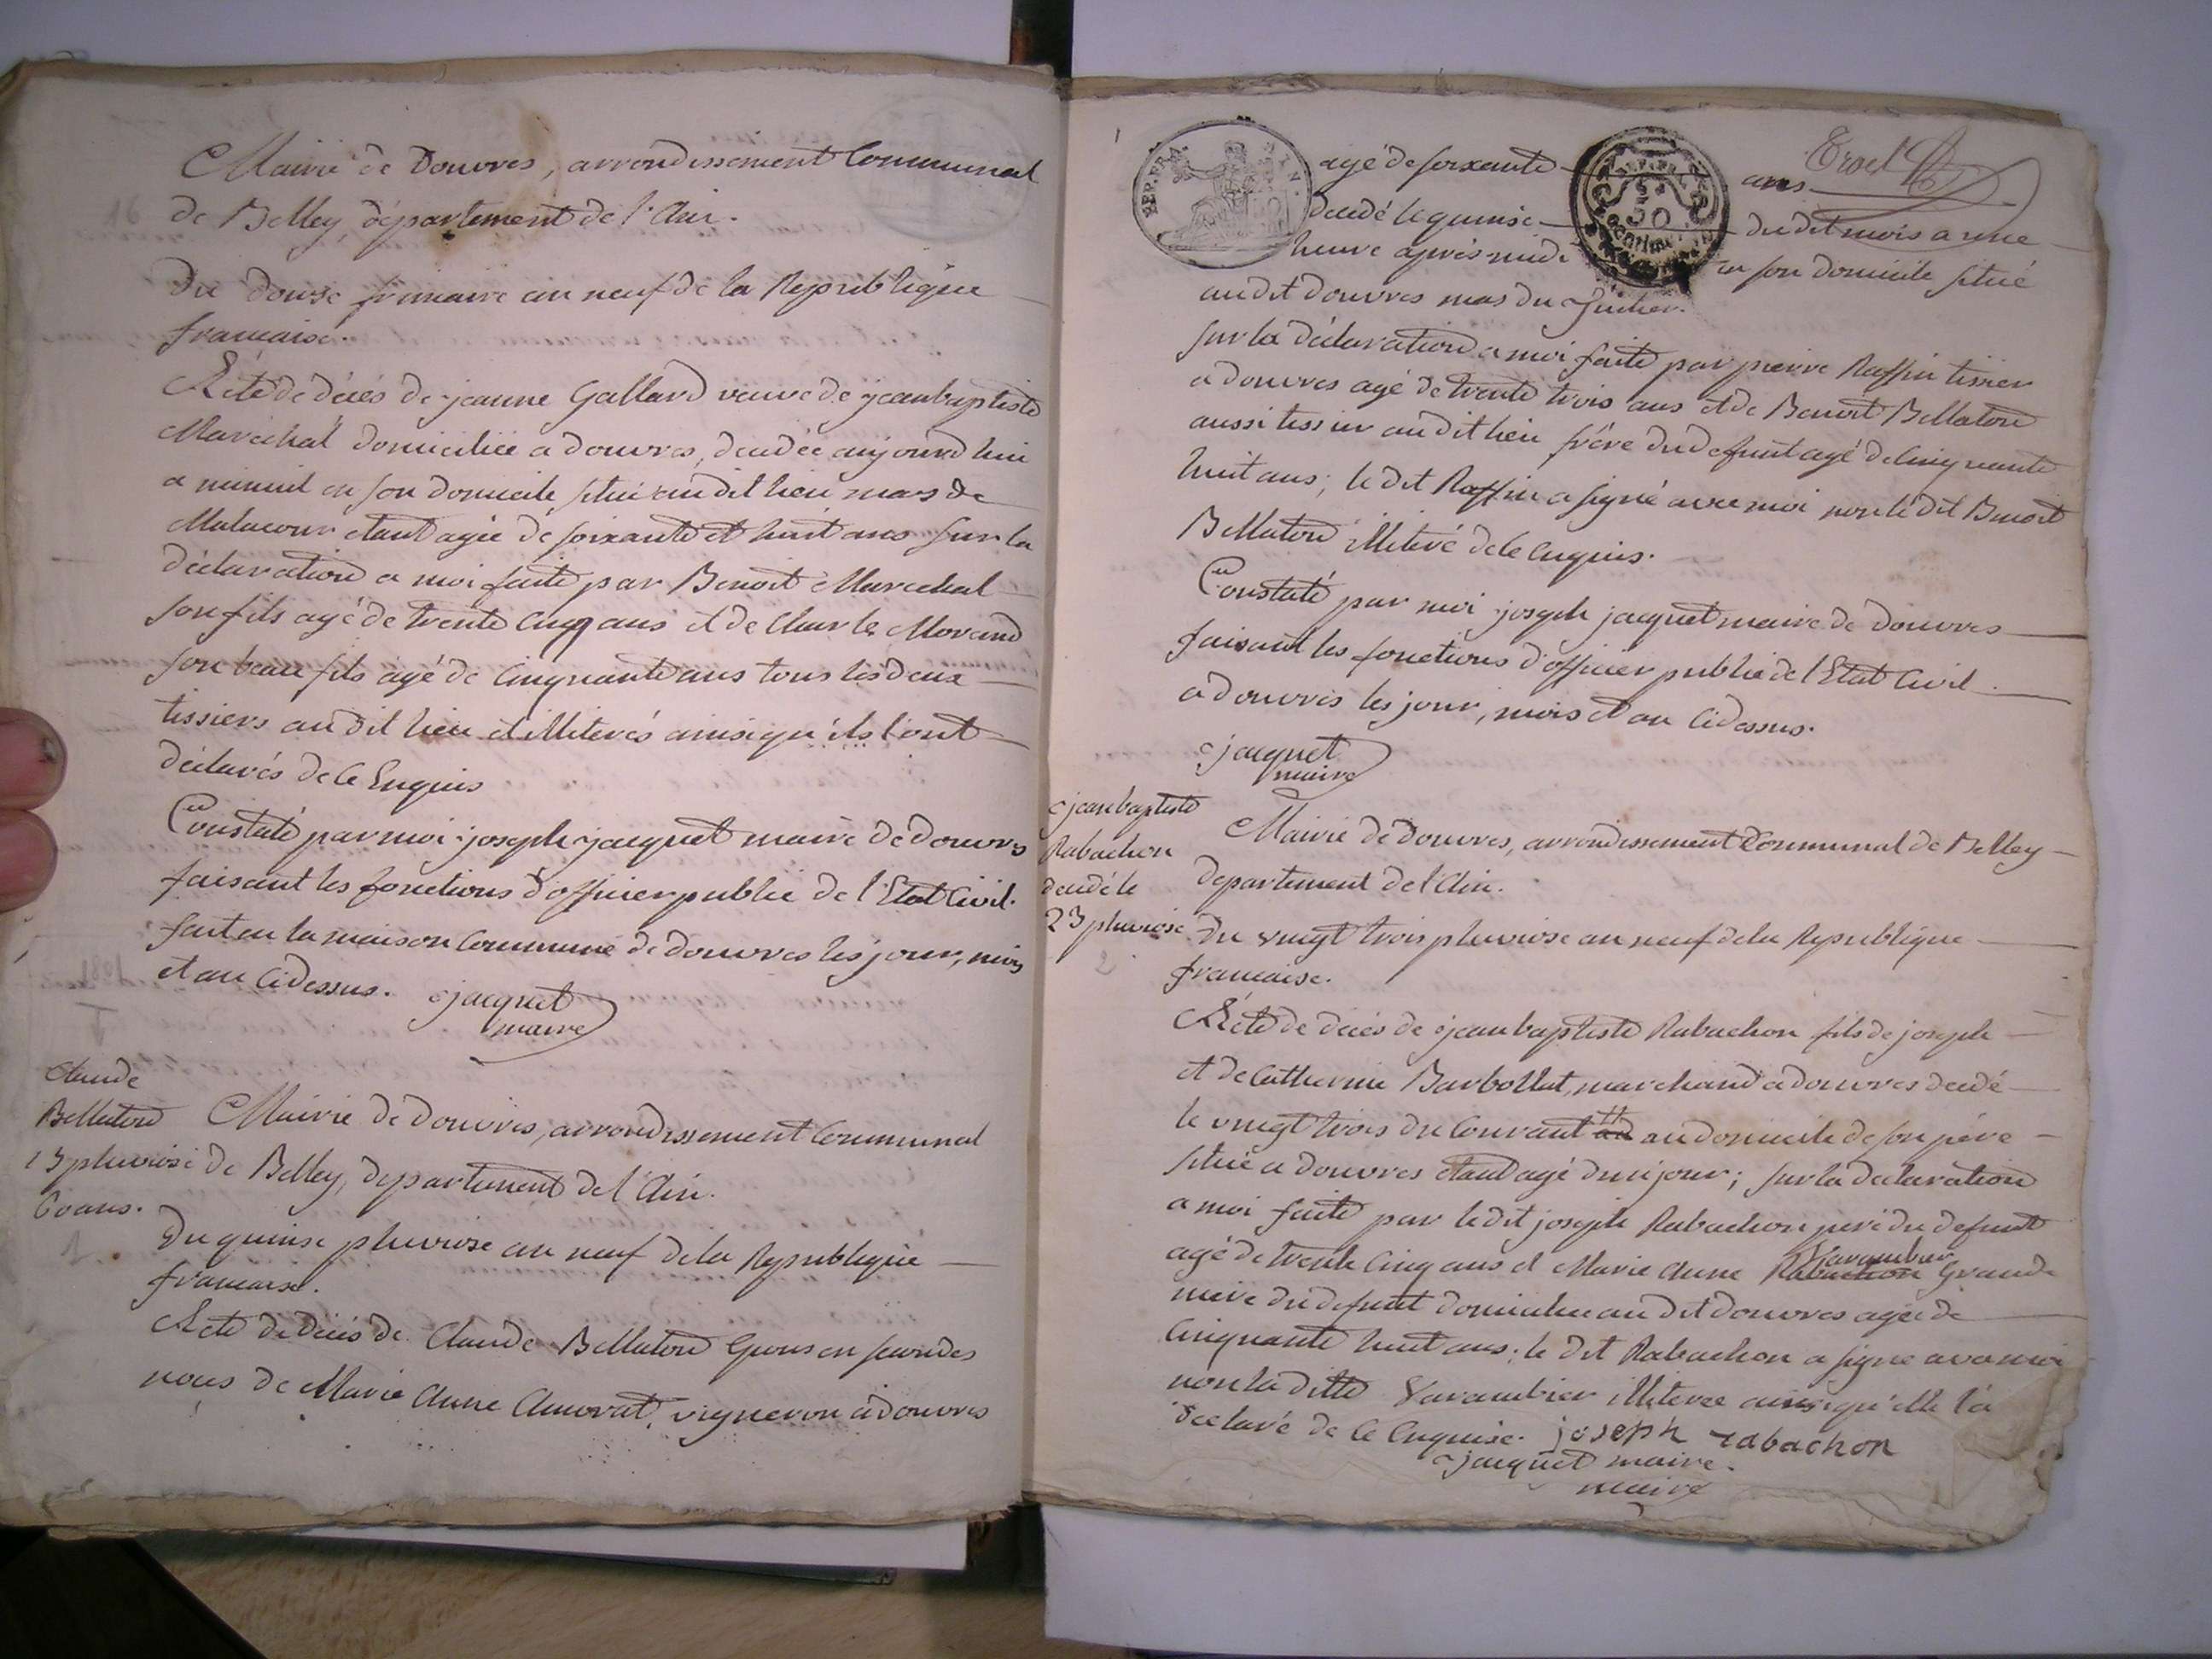 Mairie de Douvres, arrondissement Communal
de Belley, département de l'Ain.
Du douse frimaire an neuf de la Republique
francaise.
Acte de décés de jeanne Gallard veuve de jeanbaptiste
Marechal domiciliée a douvres, decedée aujourd hui
a minuit en son domicile situé au dit lieu mas de
Malacour etant agée de soixante et huit ans sur la
déclaration a moi faite par Benoit Marechal
son fils agé de trente cinq ans et de Charles Morand
son beau fils agé de cinquante ans tous les deux
tissiers au dit lieu et illiterés ainsi qu'ils l'ont
déclarés de ce Enquis
Constaté par moi joseph jacquet maire de douvres
faisant les fonctions d'officier public de l'Etat Civil.
fait en la maison Commune de douvres les jour, mois
et an cidessus. jacquet
maire
Claude
Bellaton
15 pluviose
60 ans.
1
Mairie de Douvres, arrondissement Communal
de Belley, departement de l'Ain.
Du quinse pluviose an neuf de la Republique
francaise.
Acte de décés de Claude Bellaton Epoux en secondes
noces de Marie Anne vigneron à douvres
REP. FRA.
50
Centimes
agé de soixante ans
decedé le quinse du dit mois a une
heure après midi en son domicile situé
audit douvres mas du
sur la déclaration a moi faite par pierre Raffin tissier
a douvres agé de trente trois ans et de Benoit Bellaton
aussi tissier au dit lieu frère du defunt agé de cinquante
huit ans; le dit Raffin a signé avec moi non le dit Benoit
Bellaton illiteré de ce enquis.
Constaté par moi joseph jacquet maire de douvres
faisant les fonctions d'officier public de l'Etat Civil
a douvres les jour, mois et an cidessus.
jacquet
maire
jeanbaptiste
Rabachon
decedé le
23 pluviose
2
Mairie de Douvres, arrondissement Communal de Belley
departement de l'Ain.
Du vingt trois pluviose an neuf de la Republique
francaise.
Acte de décés de jeanbaptiste Rabachon fils de joseph
et de Catherine Barbollat, marchand a douvres decedé
le vingt trois du Courant au domicile de son père
situé a douvres etant agé d'un jour; sur la declaration
a moi faite par le dit joseph Rabachon père du defunt
agé de trente cinq ans et Marie Anne Rabachon Varambier Grande
mere du defunt domiciliée au dit douvres agée de
cinquante huit ans; le dit Rabachon a signe avec moi
non la ditte Varambier illiteree ainsi qu'elle l'a
declaré de ce Enquise. joseph rabachon
jacquet maire.
maire